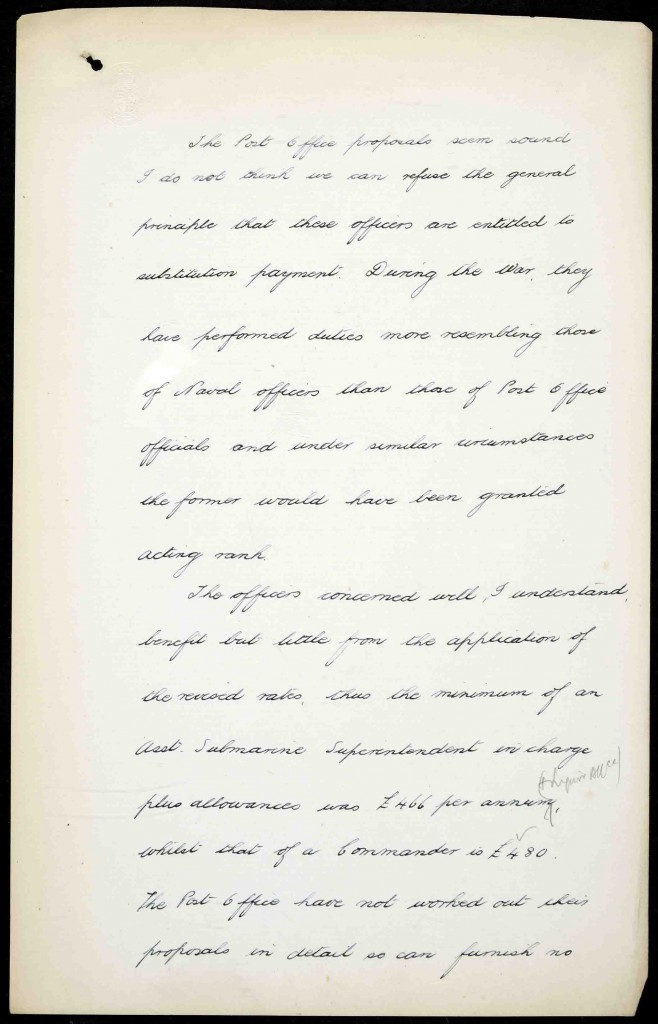 The Post Office proposals seem sound
I do not think we can refuse the general
principle that these officers are entitled to
substitution payment. During the War, they
have performed duties more resembling those
of Naval officers than those of Post Office
officials and under similar circumstances
the former would have been granted
acting rank.
The officers concerned will, I understand,
benefit but little from the application of
the revised rates, thus the minimum of an
Asst. Submarine Superintendent in charge
plus allowances was £466 per annum,
whilst that of a Commander is £480.
The Post Office have not worked out their
proposals in detail so can furnish no